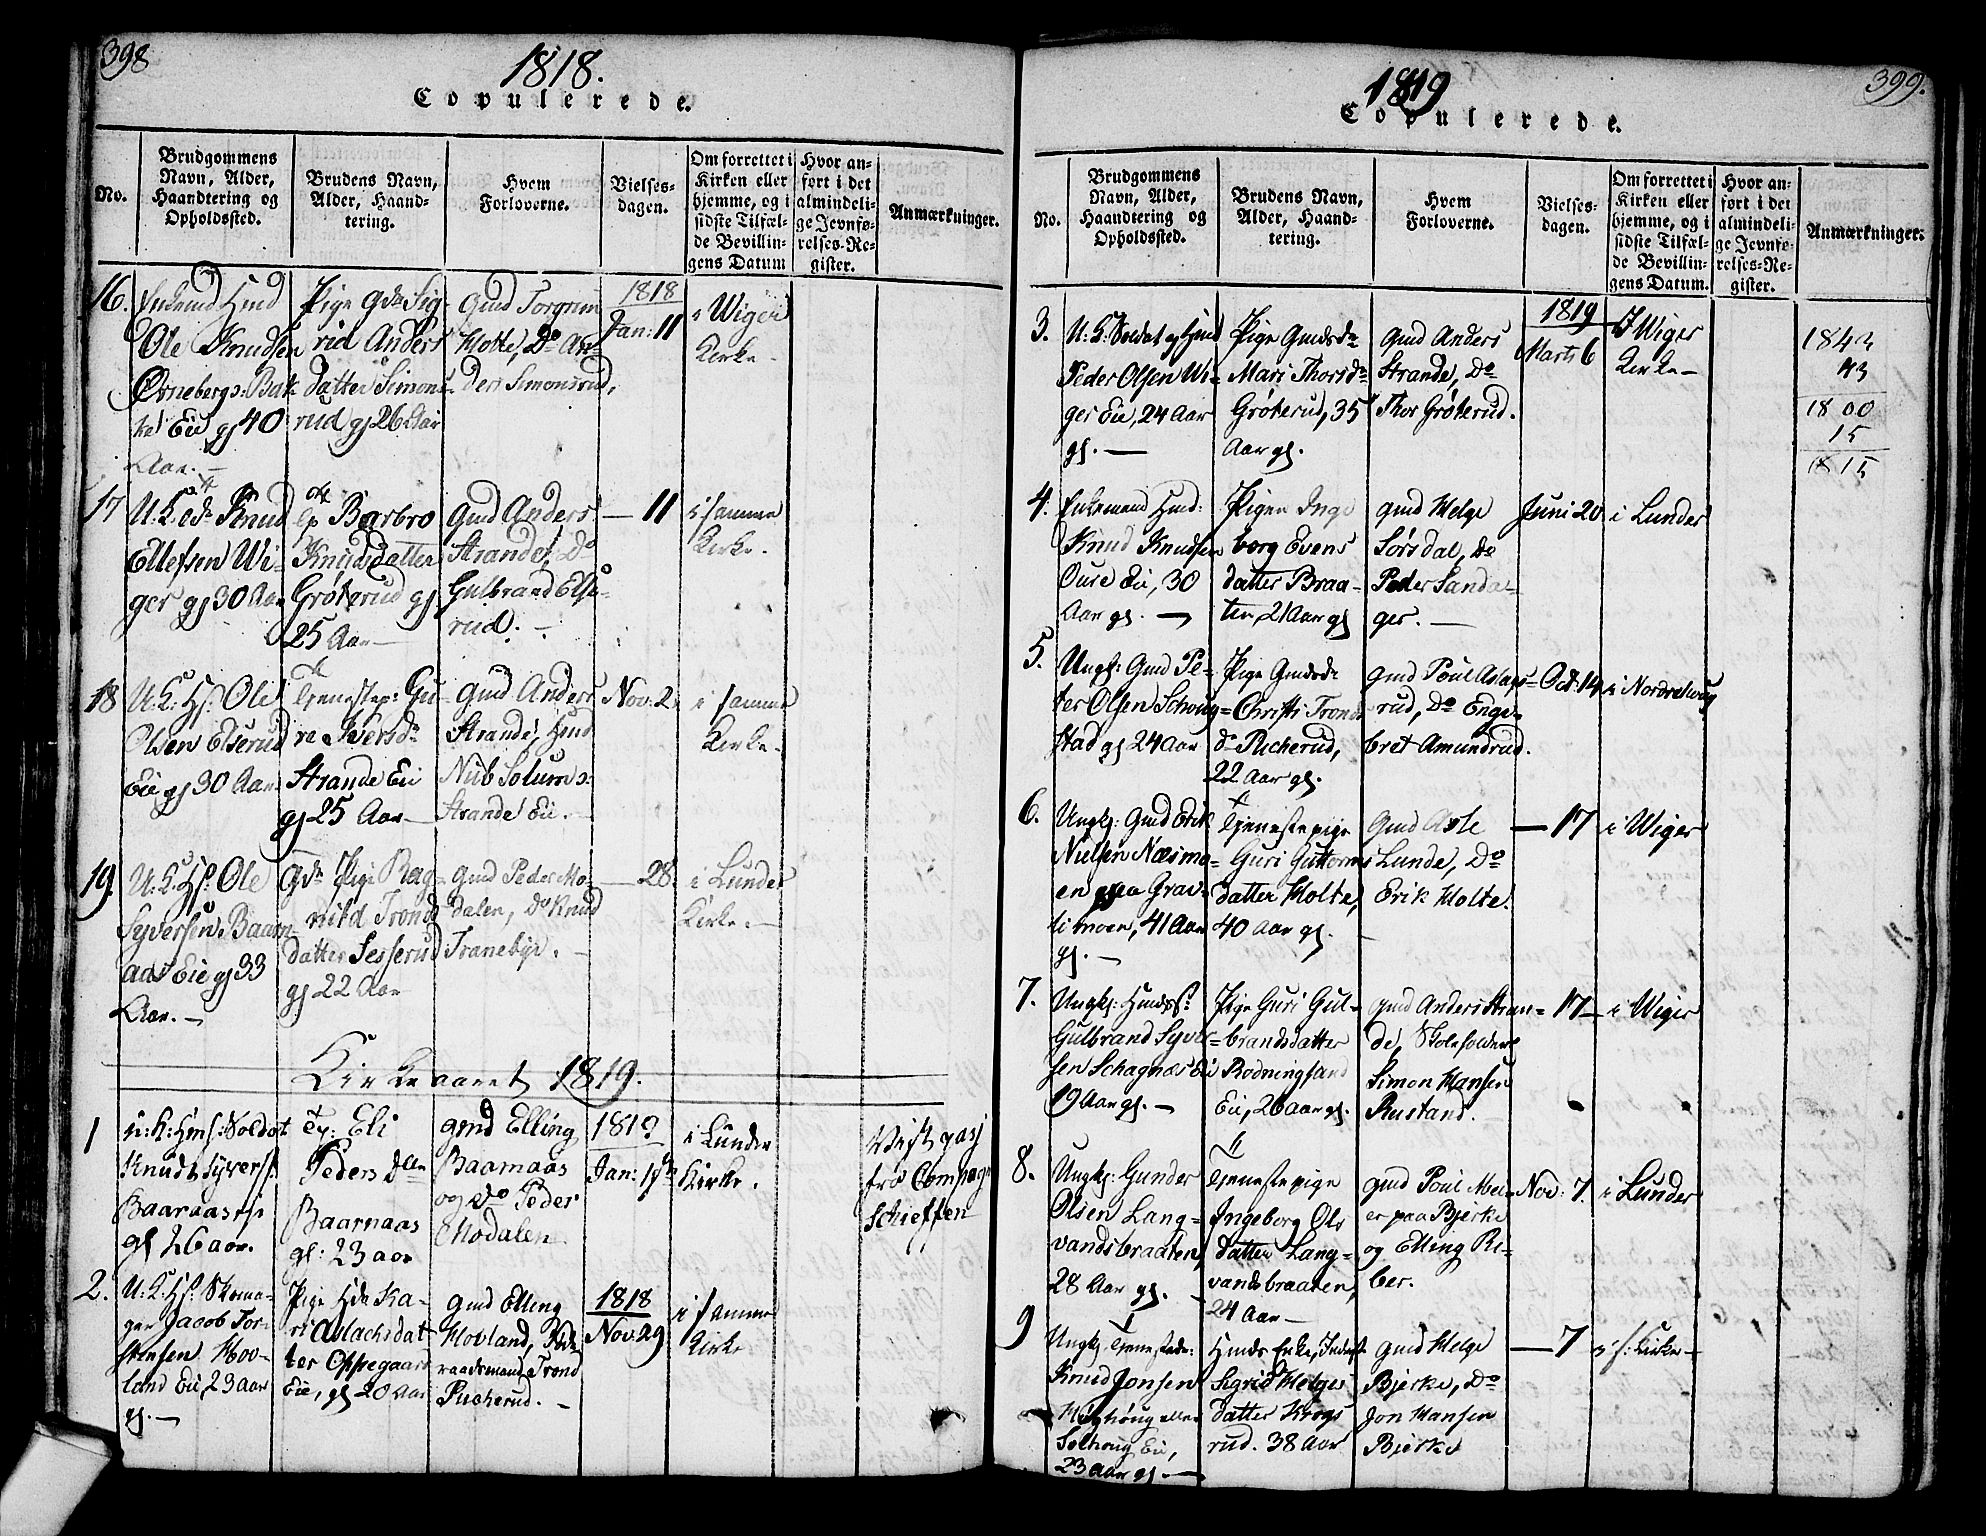 398
1818.
Copulerede.
No.
Brudgommens
Navn, Alder,
Haandtering og
Opholdssted.
Brudens Navn,
Alder, Haand-
tering.
Hvem
Forloverne.
Vielses-
dagen.
Om forrettet i
Kirken eller
hjemme, og i
sidste Tilfæl-
de Bevillin-
gens Datum
Hvor an-
ført i det
almindeli-
ge Jevnfø-
relses-Re-
gister.
Anmærkninger.
16.
Ole Knudsen
Eie gl 40
Aar. —
Pige Sig-
rid Anders
datter Simons-
rud gl 26 Aar
Gmd Torgrim
Holte, Do An-
ders Simonsrud.
1818
Jan: 11
i Wiger
Kirke —
17
Knud
Ellefsen Wi-
ger gl 30 Aar
Barbro
Knudsdatter
Grøterud gl
25 Aar —
Gmd Anders
Strande, Do
Gulbrand Else-
rud. —
— 11
i samme
Kirke.
18
U: K: Hs: Ole
Olsen Elserud
Eie gl 30 Aar
Tjenestep: Gu-
ro Iversdr
Strande Eie
gl 25 Aar —
Gmd Anders
Strande, Hmd
Nub Solum
Strande Eie. —
Nov: 2
i samme
Kirke —
19.
U: K: Hs: Ole
Syversen Baarn-
aas Eie gl 33
Aar. —
Pige Rag-
nild Tronds
datter Sesserud
gl 22 Aar
Gmd Peder Mo-
dalen, Do Knud
Tranebye. —
— 28.
i Lunder
Kirke. —
Kirkeaaret 1819.
1
Soldat
Knud Syvers:
gl 26 aar.
Ty: Eli
Peders
Baarnaas
gl: 23 aar
gmd Elling
Baarnaas
og do Peder
Modalen
1819
Jan:
i Lunder
Kirke.
fra Compag
2.
U: K: Hs: Skoma-
ger Jacob Tor-
stensen Hov-
land Eie, 23 aar
gl. —
Pige Ka-
ri Aslachsdat-
ter Oppegaard
Eie, gl 20 Aar
Gmd Elling
Hovland,
Trond
Pucherud. —
1818
Nov: 29
i samme
Kirke
399.
1819
Copulerede.
No.
Brudgommens
Navn, Alder,
Haandtering og
Opholdssted.
Brudens Navn,
Alder, Haand-
tering.
Hvem
Forloverne.
Vielses-
dagen.
Om forrettet i
Kirken eller
hjemme, og i
sidste Tilfæl-
de Bevillin-
gens Datum.
Hvor an-
ført i det
almindeli-
ge Jevnfø-
relses-Re-
gister.
Anmærkninger.
3.
U: K: Soldat og Hmd
Peder Olsen Wi-
ger Eie, 24 Aar
gl. —
Pige Gmdsdr
Mari Thorsdr
Grøterud, 35
Aar gl.
Gmd Anders
Strande, Do
Thor Grøterud.
1819
Marts 6
I Wiger
Kirke —
1843
43
1800
15
1815
4.
Enkemand Hmd:
Knud Knudsen
Oure Eie, 30
Aar gl. —
Pigen Inge
borg Evens
datter Braa-
ten, 21 Aar gl
Gmd Helge
Sørsdal, Do
Peder Sanda-
ger. —
Juni 20
i Lunder
5.
Ungk: Gmd Pe-
ter Olsen Schoug-
stad gl 24 Aar
Pige Gmdsdr
Christi Tronds
dr Pucherud,
22 Aar gl.
Gmd Poul Aslags-
rud, Do Enge-
bret Amundrud.
Oct: 14
i Norderhoug
6.
Ungk: Gmd Erik
Nielsen Næsmo-
en paa Grav-
li moen, 41 Aar
gl. —
Tjenestepige
Guri Guttorms
datter Holte,
40 Aar gl.
Gmd Asle
Lunde, Do
Erik Holte.
— 17
i Wiger
7.
Ungk: Hmdss:
Gulbrand Syver-
sen Schagnæs Ei
19 Aar gl. —
Pige Guri Gul-
brandsdatter
Rodningsand
Eie, 26 aar gl.
Gmd Anders Stran-
de, Skoleholder
Simon Hansen
Rustand.
17 —
i Wiger
8.
Ungk: Gunder
Olsen Lang-
vandsbraaten,
28 Aar gl. —
Tjenestepige
Ingeborg Ols
datter Lang-
vandsbraaten,
24 Aar —
Gmd Poul Mei-
er paa Bjerke
og Elling Ri-
ber.
Nov: 7.
i Lunder
9
Ungk: Tjenestedr:
Knud Jonsen
eller
Solhoug Eie,
23 aar gl. —
Hmds Enke,
Sigrid Helges
datter Krogs
rud. 38 Aar
Gmd Helge
Bjerke, Do
Jon Hansen
Bjerke
— 7
i s: Kirke —